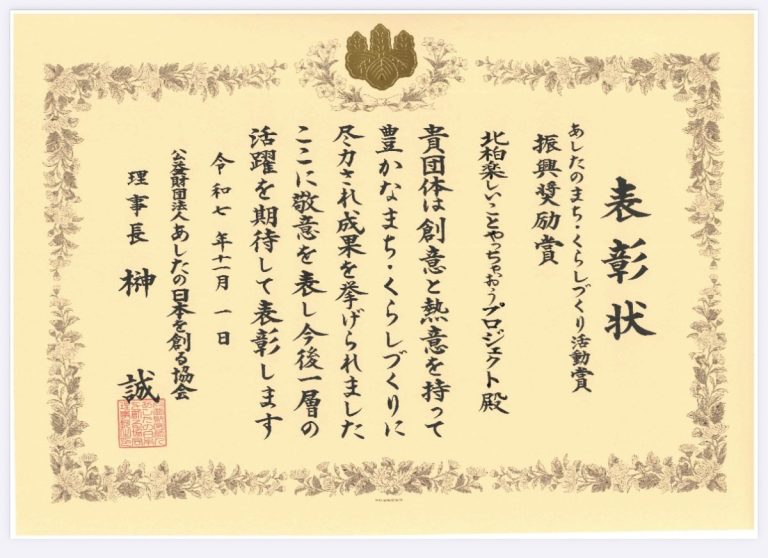 表彰状
あしたのまち・くらしづくり活動賞
振興奨励賞
北柏楽しいことやっちゃおうプロジェクト殿
貴団体は創意と熱意を持って
豊かなまち・くらしづくりに
尽力され成果を挙げられました
ここに敬意を表し今後一層の
活躍を期待して表彰します
令和七年十一月一日
公益財団法人あしたの日本を創る協会
理事長 榊 誠